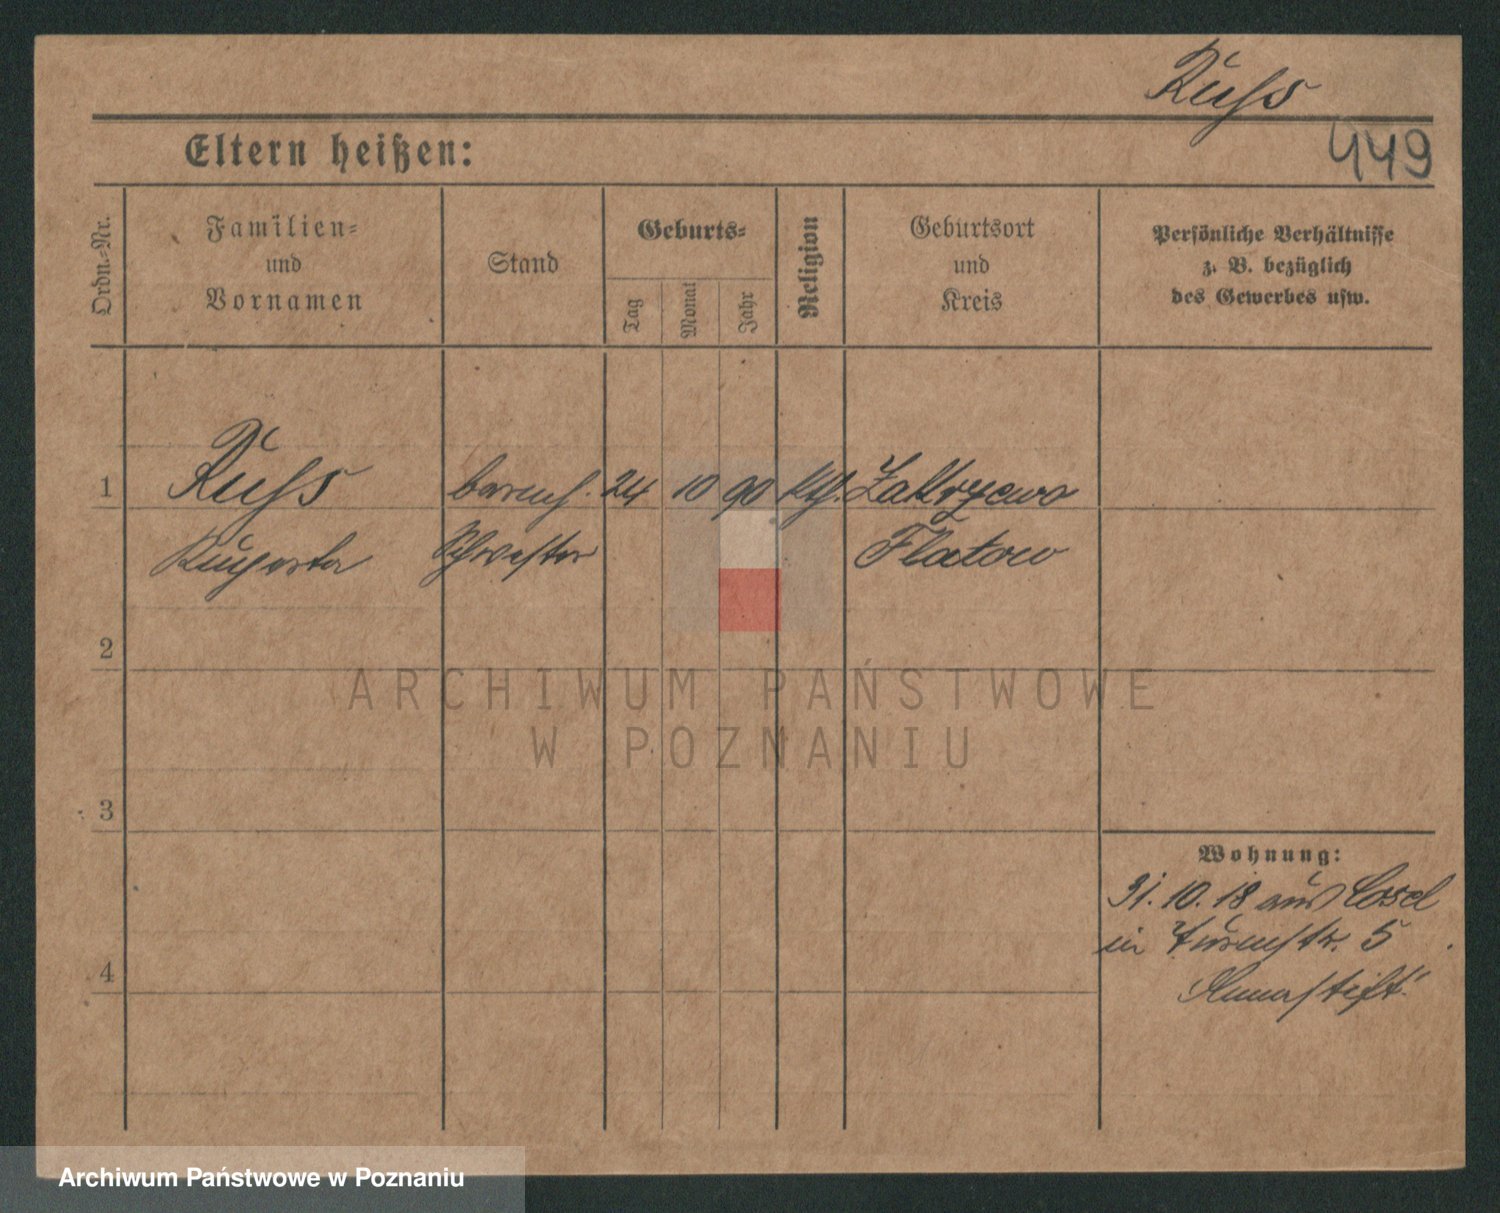 Ruhs
449
Eltern heißen:
Ordn.-Nr.
Familien-
und
Vornamen
Stand
Geburts-
Tag
Monat
Jahr
Religion
Geburtsort
und
Kreis
Persönliche Verhältnisse
z. B. bezüglich
des Gewerbes usw.
1
Ruhs
barmh. 24 10 90 kth. Zakrzewo
Schwester
Flatow
2
ARCHIWUM PAŃSTWOWE
W POZNANIU
3
Wohnung:
31. 10. 18 aus Cosel
in 5
Annastift
4
Archiwum Państwowe w Poznaniu